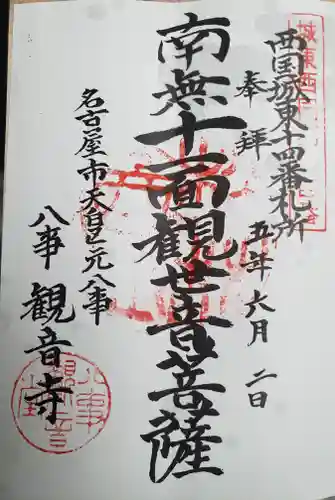 西国城東十四番札所
奉拝
五年六月二日
南無十一面観世音菩薩
名古屋市天白区元八事
八事観音寺